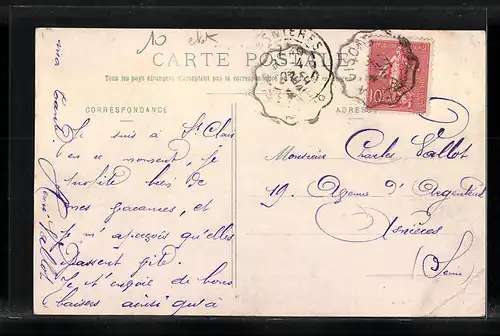 10
CARTE POSTALE
Tous les pays étrangers n'acceptent pas la correspondance
CORRESPONDANCE
Je suis à St Clair
en ce moment, je
profite bien de
mes vacances, et
je m'aperçois qu'elles
passent vite.
Je t'envoie de bons
baisers ainsi qu'à
ma tante.
Vallot
ASNIÈRES
10
ADRESSE
Monsieur Charles Vallot
19, Avenue d'Argenteuil
Asnières
(Seine)